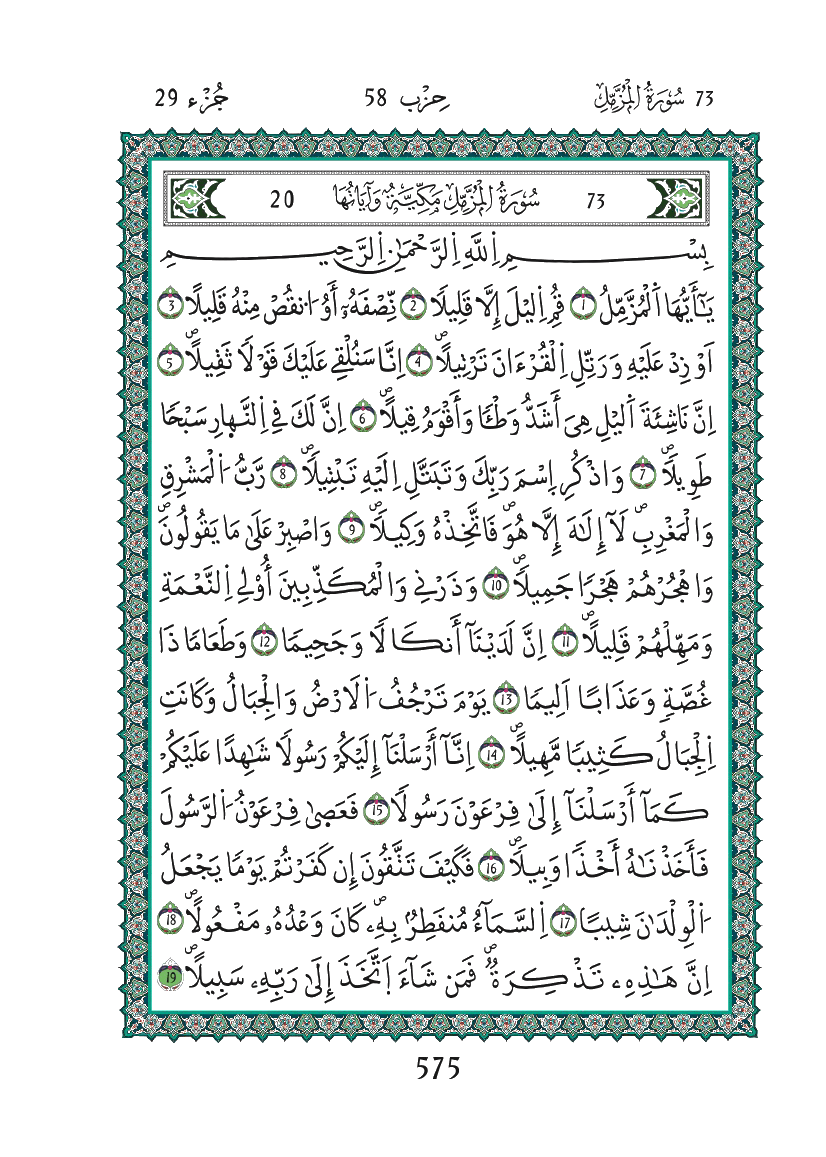 73 سُورَةُ الْمُزَّمِّلِ حِزْب 58 جُزْء 29
73 سُورَةُ الْمُزَّمِّلِ مَكِّيَّةٌ وَآيَاتُهَا 20
بِسْمِ اِ۬للَّهِ اِ۬لرَّحْمَٰنِ اِ۬لرَّحِيمِ
يَٰٓأَيُّهَا اَ۬لْمُزَّمِّلُ 1 قُمِ اِ۬ليْلَ إِلَّا قَلِيلٗا 2 نِّصْفَهُۥٓ أَوُ اُ۟نقُصْ مِنْهُ قَلِيلًا 3
اَوْ زِدْ عَلَيْهِ وَرَتِّلِ اِ۬لْقُرْءَانَ تَرْتِيلًاۖ 4 اِنَّا سَنُلْقِے عَلَيْكَ قَوْلٗا ثَقِيلًاۖ 5
اِنَّ نَاشِئَةَ اَ۬ليْلِ هِيَ أَشَدُّ وَطْـٔٗا وَأَقْوَمُ قِيلًاۖ 6 اِنَّ لَكَ فِے اِ۬لنَّه۪ارِ سَبْحٗا
طَوِيلٗاۖ 7 وَاذْكُرِ اِ۪سْمَ رَبِّكَ وَتَبَتَّلِ اِلَيْهِ تَبْتِيلٗاۖ 8 رَّبُّ اُ۬لْمَشْرِقِ
وَالْمَغْرِبِۖ لَآ إِلَٰهَ إِلَّا هُوَۖ فَاتَّخِذْهُ وَكِيلٗاۖ 9 وَاصْبِرْ عَلَىٰ مَا يَقُولُونَۖ
وَاهْجُرْهُمْ هَجْرٗا جَمِيلٗاۖ 10 وَذَرْنِے وَالْمُكَذِّبِينَ أُوْلِے اِ۬لنَّعْمَةِ
وَمَهِّلْهُمْ قَلِيلًاۖ 11 اِنَّ لَدَيْنَآ أَنكَالٗا وَجَحِيمٗا 12 وَطَعَامٗا ذَا
غُصَّةٖ وَعَذَابًا اَلِيمٗا 13 يَوْمَ تَرْجُفُ اُ۬لَارْضُ وَالْجِبَالُ وَكَانَتِ
اِ۬لْجِبَالُ كَثِيبٗا مَّهِيلًاۖ 14 اِنَّآ أَرْسَلْنَآ إِلَيْكُمْ رَسُولٗا شَٰهِدًا عَلَيْكُمْ
كَمَآ أَرْسَلْنَآ إِلَىٰ فِرْعَوْنَ رَسُولٗا 15 فَعَصَىٰ فِرْعَوْنُ اُ۬لرَّسُولَ
فَأَخَذْنَٰهُ أَخْذٗا وَبِيلٗاۖ 16 فَكَيْفَ تَتَّقُونَ إِن كَفَرْتُمْ يَوْمٗا يَجْعَلُ
اُ۬لْوِلْدَٰنَ شِيبًا 17 اِ۬لسَّمَآءُ مُنفَطِرُۢ بِهِۦۖ كَانَ وَعْدُهُۥ مَفْعُولًاۖ 18
اِنَّ هَٰذِهِۦ تَذْكِرَةٞۖ فَمَن شَآءَ اَ۪تَّخَذَ إِلَىٰ رَبِّهِۦ سَبِيلًاۖ 19
575